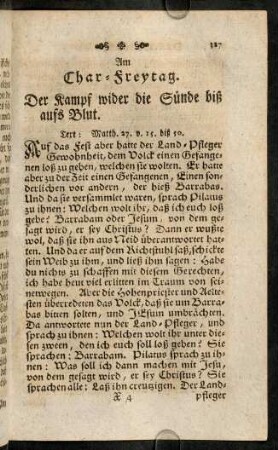 327
Am
Char-Freytag.
Der Kampf wider die Sünde biß
aufs Blut.
Text: Matth. 27. v. 15. biß 50.
Auf das Fest aber hatte der Land-Pfleger
Gewohnheit, dem Volck einen Gefange-
nen loß zu geben, welchen sie wolten. Er hatte
aber zu der Zeit einen Gefangenen, Einen son-
derlichen vor andern, der hieß Barrabas.
Und da sie versammlet waren, sprach Pilatus
zu ihnen: Welchen wolt ihr, daß ich euch loß
gebe? Barrabam oder Jesum, von dem ge-
sagt wird, er sey Christus? Dann er wußte
wol, daß sie ihn aus Neid überantwortet hat-
ten. Und da er auf dem Richtstuhl saß, schickte
sein Weib zu ihm, und ließ ihm sagen: Habe
du nichts zu schaffen mit diesem Gerechten,
ich habe heut viel erlitten im Traum von sei-
netwegen. Aber die Hohenpriester und Aelte-
sten überredeten das Volck, daß sie um Barra-
bas bitten solten, und JEsum umbrächten.
Da antwortete nun der Land-Pfleger, und
sprach zu ihnen: Welchen wolt ihr unter die-
sen zween, den ich euch soll loß geben? Sie
sprachen: Barrabam. Pilatus sprach zu ih-
nen: Was soll ich dann machen mit Jesu,
von dem gesagt wird, er sey Christus? Sie
sprachen alle: Laß ihn creutzigen. Der Land-
X 4 pfleger